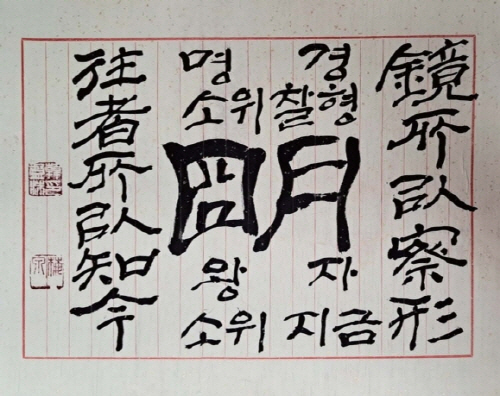 鏡所以察形
명 경
소위 찰형
朙
왕 자
소위 지금
往者所以知今